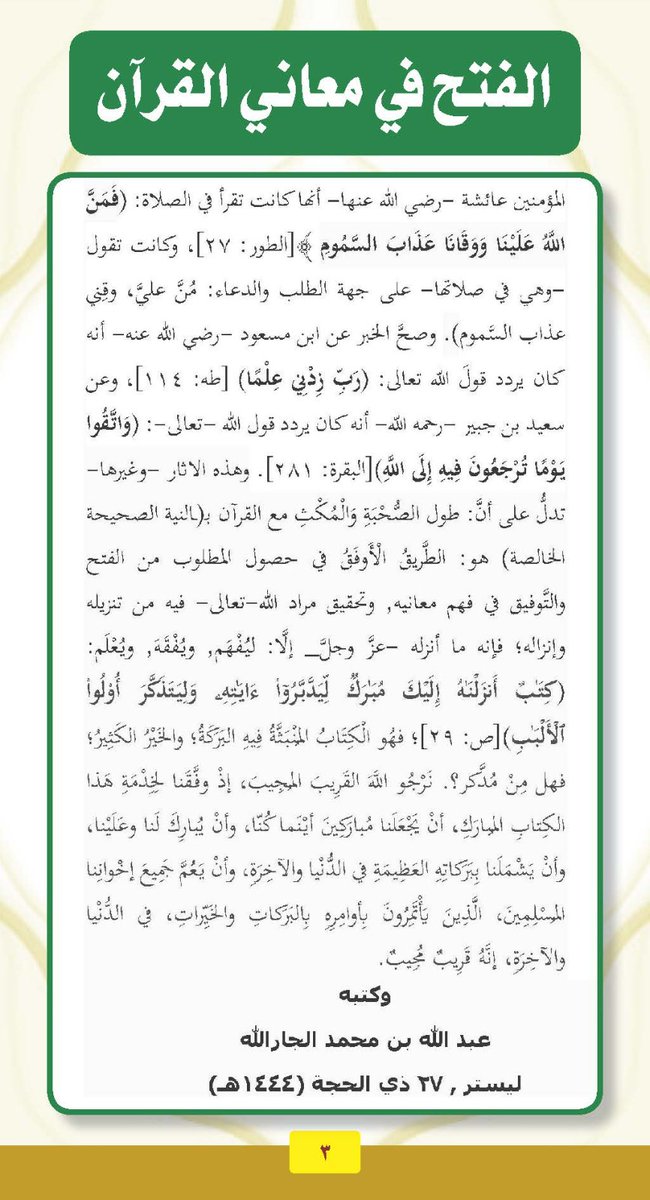 الفتح في معاني القرآن
المؤمنين عائشة -رضي الله عنها- أنها كانت تقرأ في الصلاة: (فَمَنَّ
اللَّهُ عَلَيْنَا وَوَقَانَا عَذَابَ السَّمُومِ ﴾[الطور: ٢٧]، وكانت تقول
-وهي في صلاتها- على جهة الطلب والدعاء: مُنَّ عليَّ، وقِني
عذاب السَّموم). وصحَّ الخبر عن ابن مسعود -رضي الله عنه- أنه
كان يردد قولَ الله تعالى: (رَبِّ زِدْنِي عِلْمًا) [طه: ١١٤]، وعن
سعيد بن جبير -رحمه الله- أنه كان يردد قول الله -تعالى-: (وَاتَّقُوا
يَوْمًا تُرْجَعُونَ فِيهِ إِلَى اللَّهِ)[البقرة: ٢٨١]. وهذه الاثار -وغيرها-
تدلُّ على أنَّ: طول الصُّحْبَةِ وَالْمُكْثِ مع القرآن بـ(النية الصحيحة
الخالصة) هو: الطَّرِيقُ الْأَوفَقُ في حصول المطلوب من الفتح
والتَّوفيق في فهم معانيه, وتحقيق مراد الله-تعالى- فيه من تنزيله
وإنزاله؛ فإنه ما أنزله -عزَّ وجلَّ_ إلَّا: ليُفْهَم, ويُفْقَهَ, ويُعْلَم:
(كِتَٰبٌ أَنزَلْنَٰهُ إِلَيْكَ مُبَٰرَكٌ لِّيَدَّبَّرُوٓاْ ءَايَٰتِهِۦ وَلِيَتَذَكَّرَ أُوْلُواْ
ٱلْأَلْبَٰبِ)[ص: ٢٩]؛ فهُو الْكِتَابُ المُنْبَثَّةُ فِيهِ البَرَكَةُ؛ والخَيْرُ الكَثِيرُ؛
فهل مِنْ مُدَّكر؟. نَرْجُو اللهَ القَرِيبَ المجِيبَ، إذْ وفَّقَنا لخِدْمَةِ هَذا
الكِتابِ المبارَكِ، أنْ يَجْعَلَنا مُبارَكِينَ أيْنَما كُنّا، وأنْ يُبارِكَ لَنا وعَلَيْنا،
وأنْ يَشْمَلَنا بِبَرَكاتِهِ العَظِيمَةِ في الدُّنْيا والآخِرَةِ، وأنْ يَعُمَّ جَمِيعَ إخْوانِنا
المسْلِمِينَ، الَّذِينَ يَأْتَمِرُونَ بِأوامِرِهِ بِالبَرَكاتِ والخَيْراتِ، في الدُّنْيا
والآخِرَةِ، إنَّهُ قَرِيبٌ مُجِيبٌ.
وكتبه
عبد الله بن محمد الجارالله
ليستر , ٢٧ ذي الحجة (١٤٤٤هـ)
٣